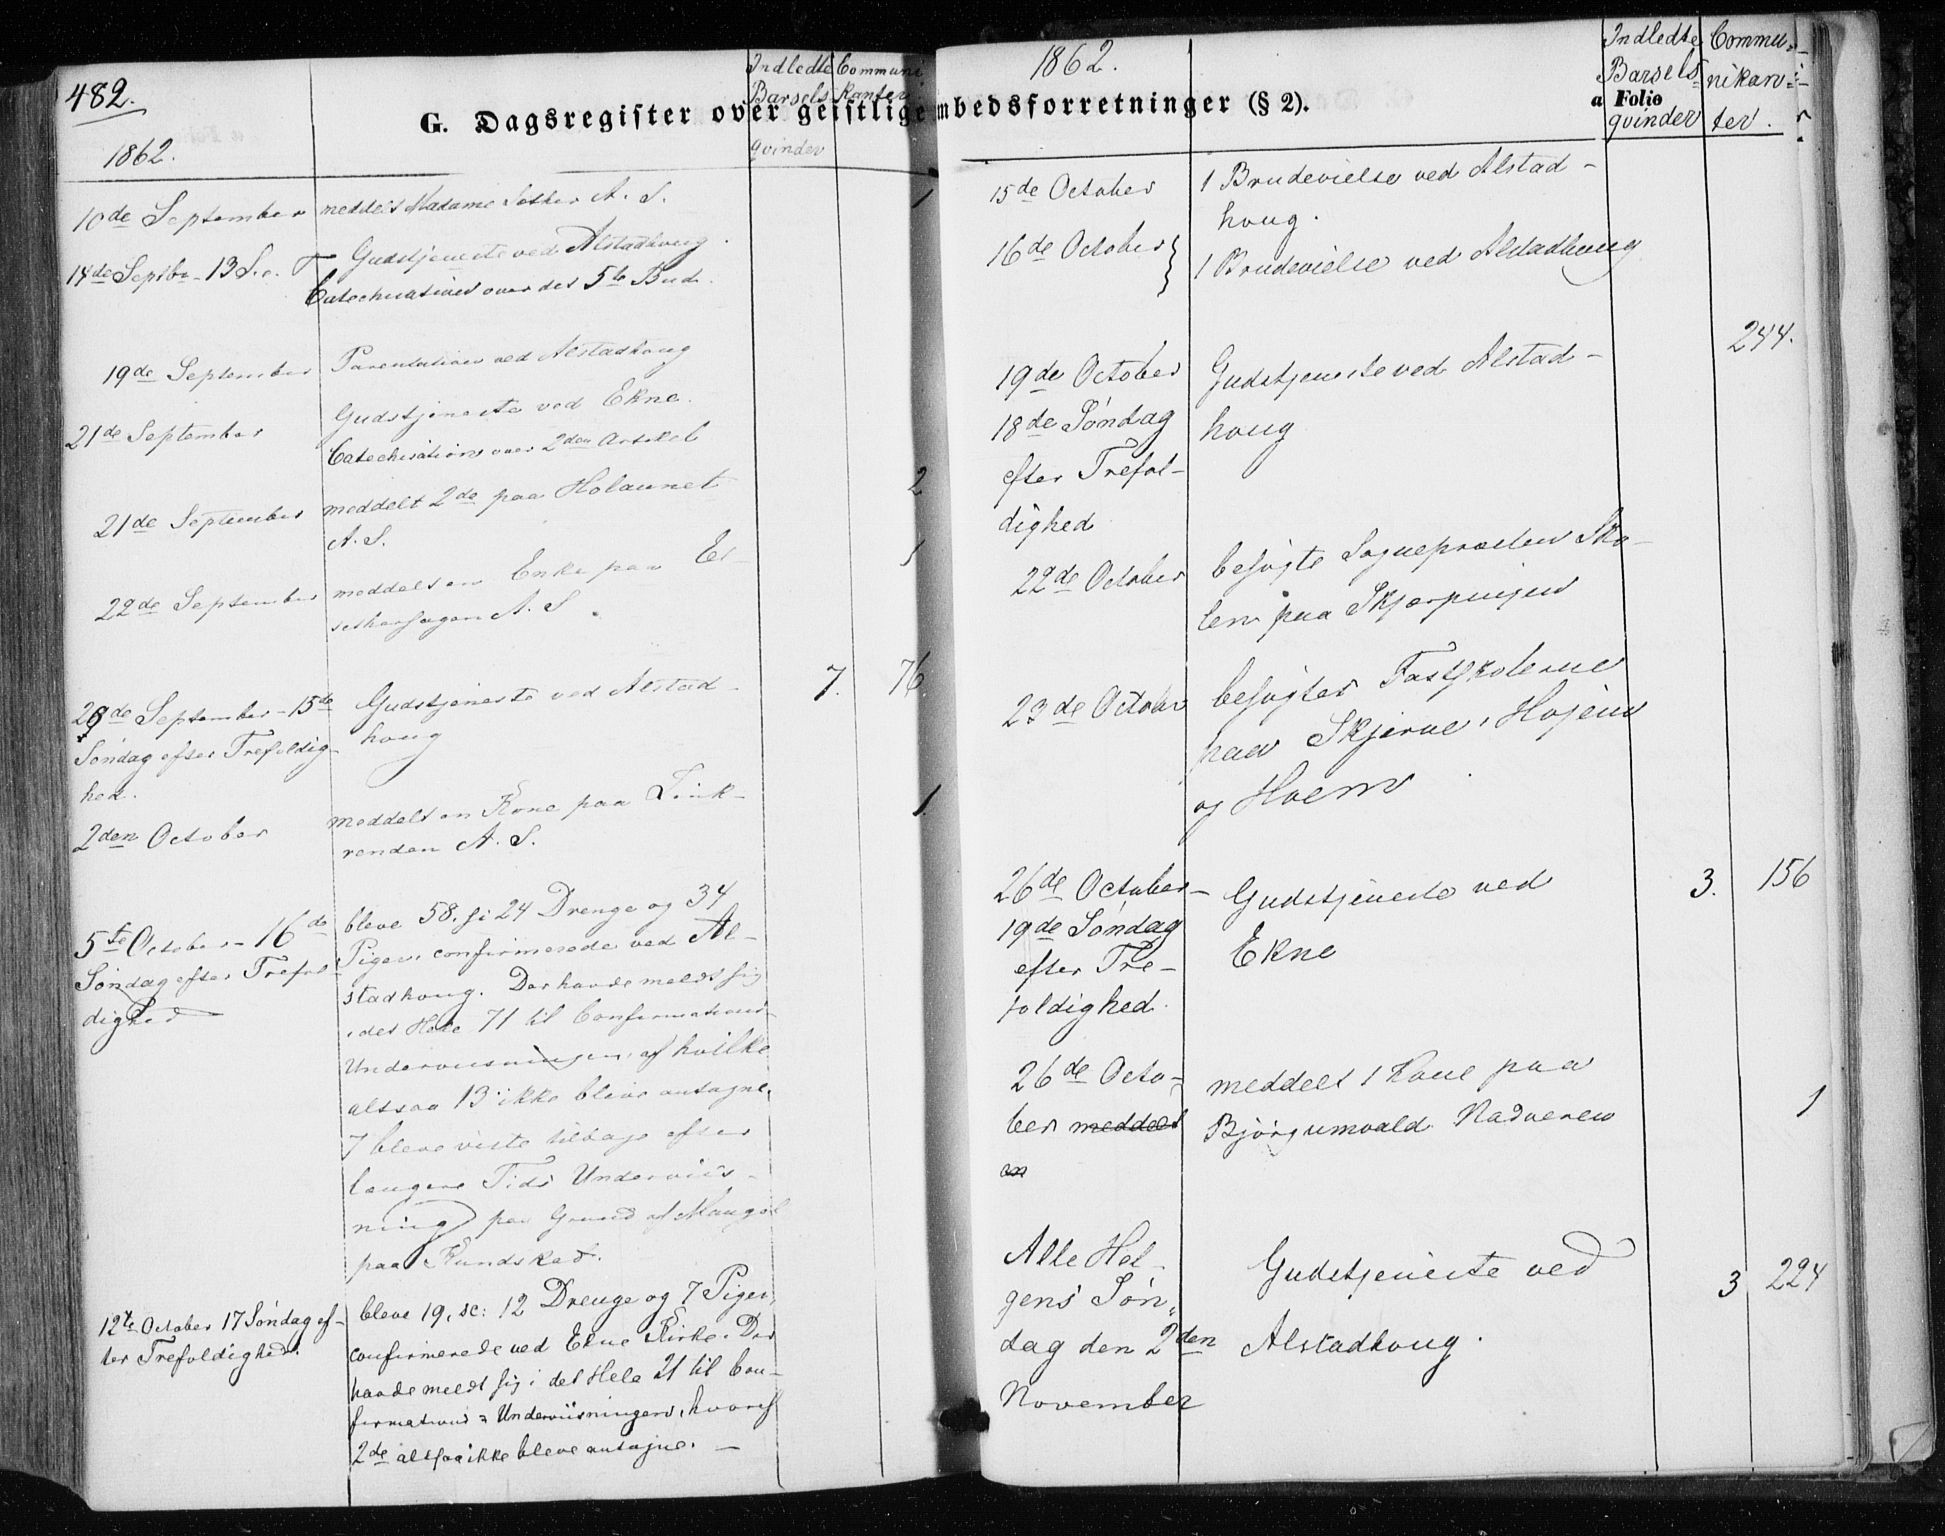 482.
Indledte Communi
Barsels kanter
G. Dagsregister over geistlige
qvinder
1862.
10de September meddelt Madame A. S. 1
14de Septbr - 13 S. e. T Gudstjeneste ved Alstadhoug.
Catechisation over det 5te Bud.
19de September Parentation ved Alstadhoug
21de September Gudstjeneste ved Ekne.
Catechisation over 2den Artikel
21de September meddelt 2de paa Holaunet 2
A. S.
22de September meddelt en Enke paa 1
A. S.
28de September - 15de Gudstjeneste ved Alstad- 7. 76
Søndag efter Trefoldig- houg
hed.
2den October meddelt en Kone paa Tink- 1.
renden A. S.
5te October - 16de bleve 58, s: 24 Drenge og 34
Søndag efter Trefol- Piger, confirmerede ved Al-
dighed stadhoug. Der havde meldt sig
i det Hele 71 til Confirmations-
Underviisningen, af hvilke
altsaa 13 ikke bleve antagne,
7 bleve viste tilbage efter
længere Tids Underviis-
ning paa Grund af Mangel
paa Kundskab.
12te October 17 Søndag ef- bleve 19, sc: 12 Drenge og 7 Piger,
ter Trefoldighed. confirmerede ved Ekne Kirke. Der
havde meldt sig i det Hele 21 til Con-
firmations = Underviisningen, hvoraf
2de altsaa ikke bleve antagne. —
1862.
Indledte Commu-
Barsels nikan-
mbedsforretninger (§ 2). a Folio
qvinder ter.
15de October 1 Brudevielse ved Alstad-
houg.
16de October 1 Brudevielse ved Alstadhoug
244.
19de October Gudstjeneste ved Alstad-
18de Søndag houg
efter Trefol-
dighed
22de October besøgte Sognepræsten Sko-
len paa Skjerpingen
23de October besøgtes Fastskolerne
paa Skjerve, Hojem
og Hoem
26de October - Gudstjeneste ved 3. 156
19de Søndag Ekne
efter Tre-
foldighed.
26de Octo- meddelt 1 Kone paa
ber meddelt Bjørgumvald Nadveren 1
en
Alle Hel- Gudstjeneste ved
gens Søn- 3 224
dag den 2den Alstadhoug.
November